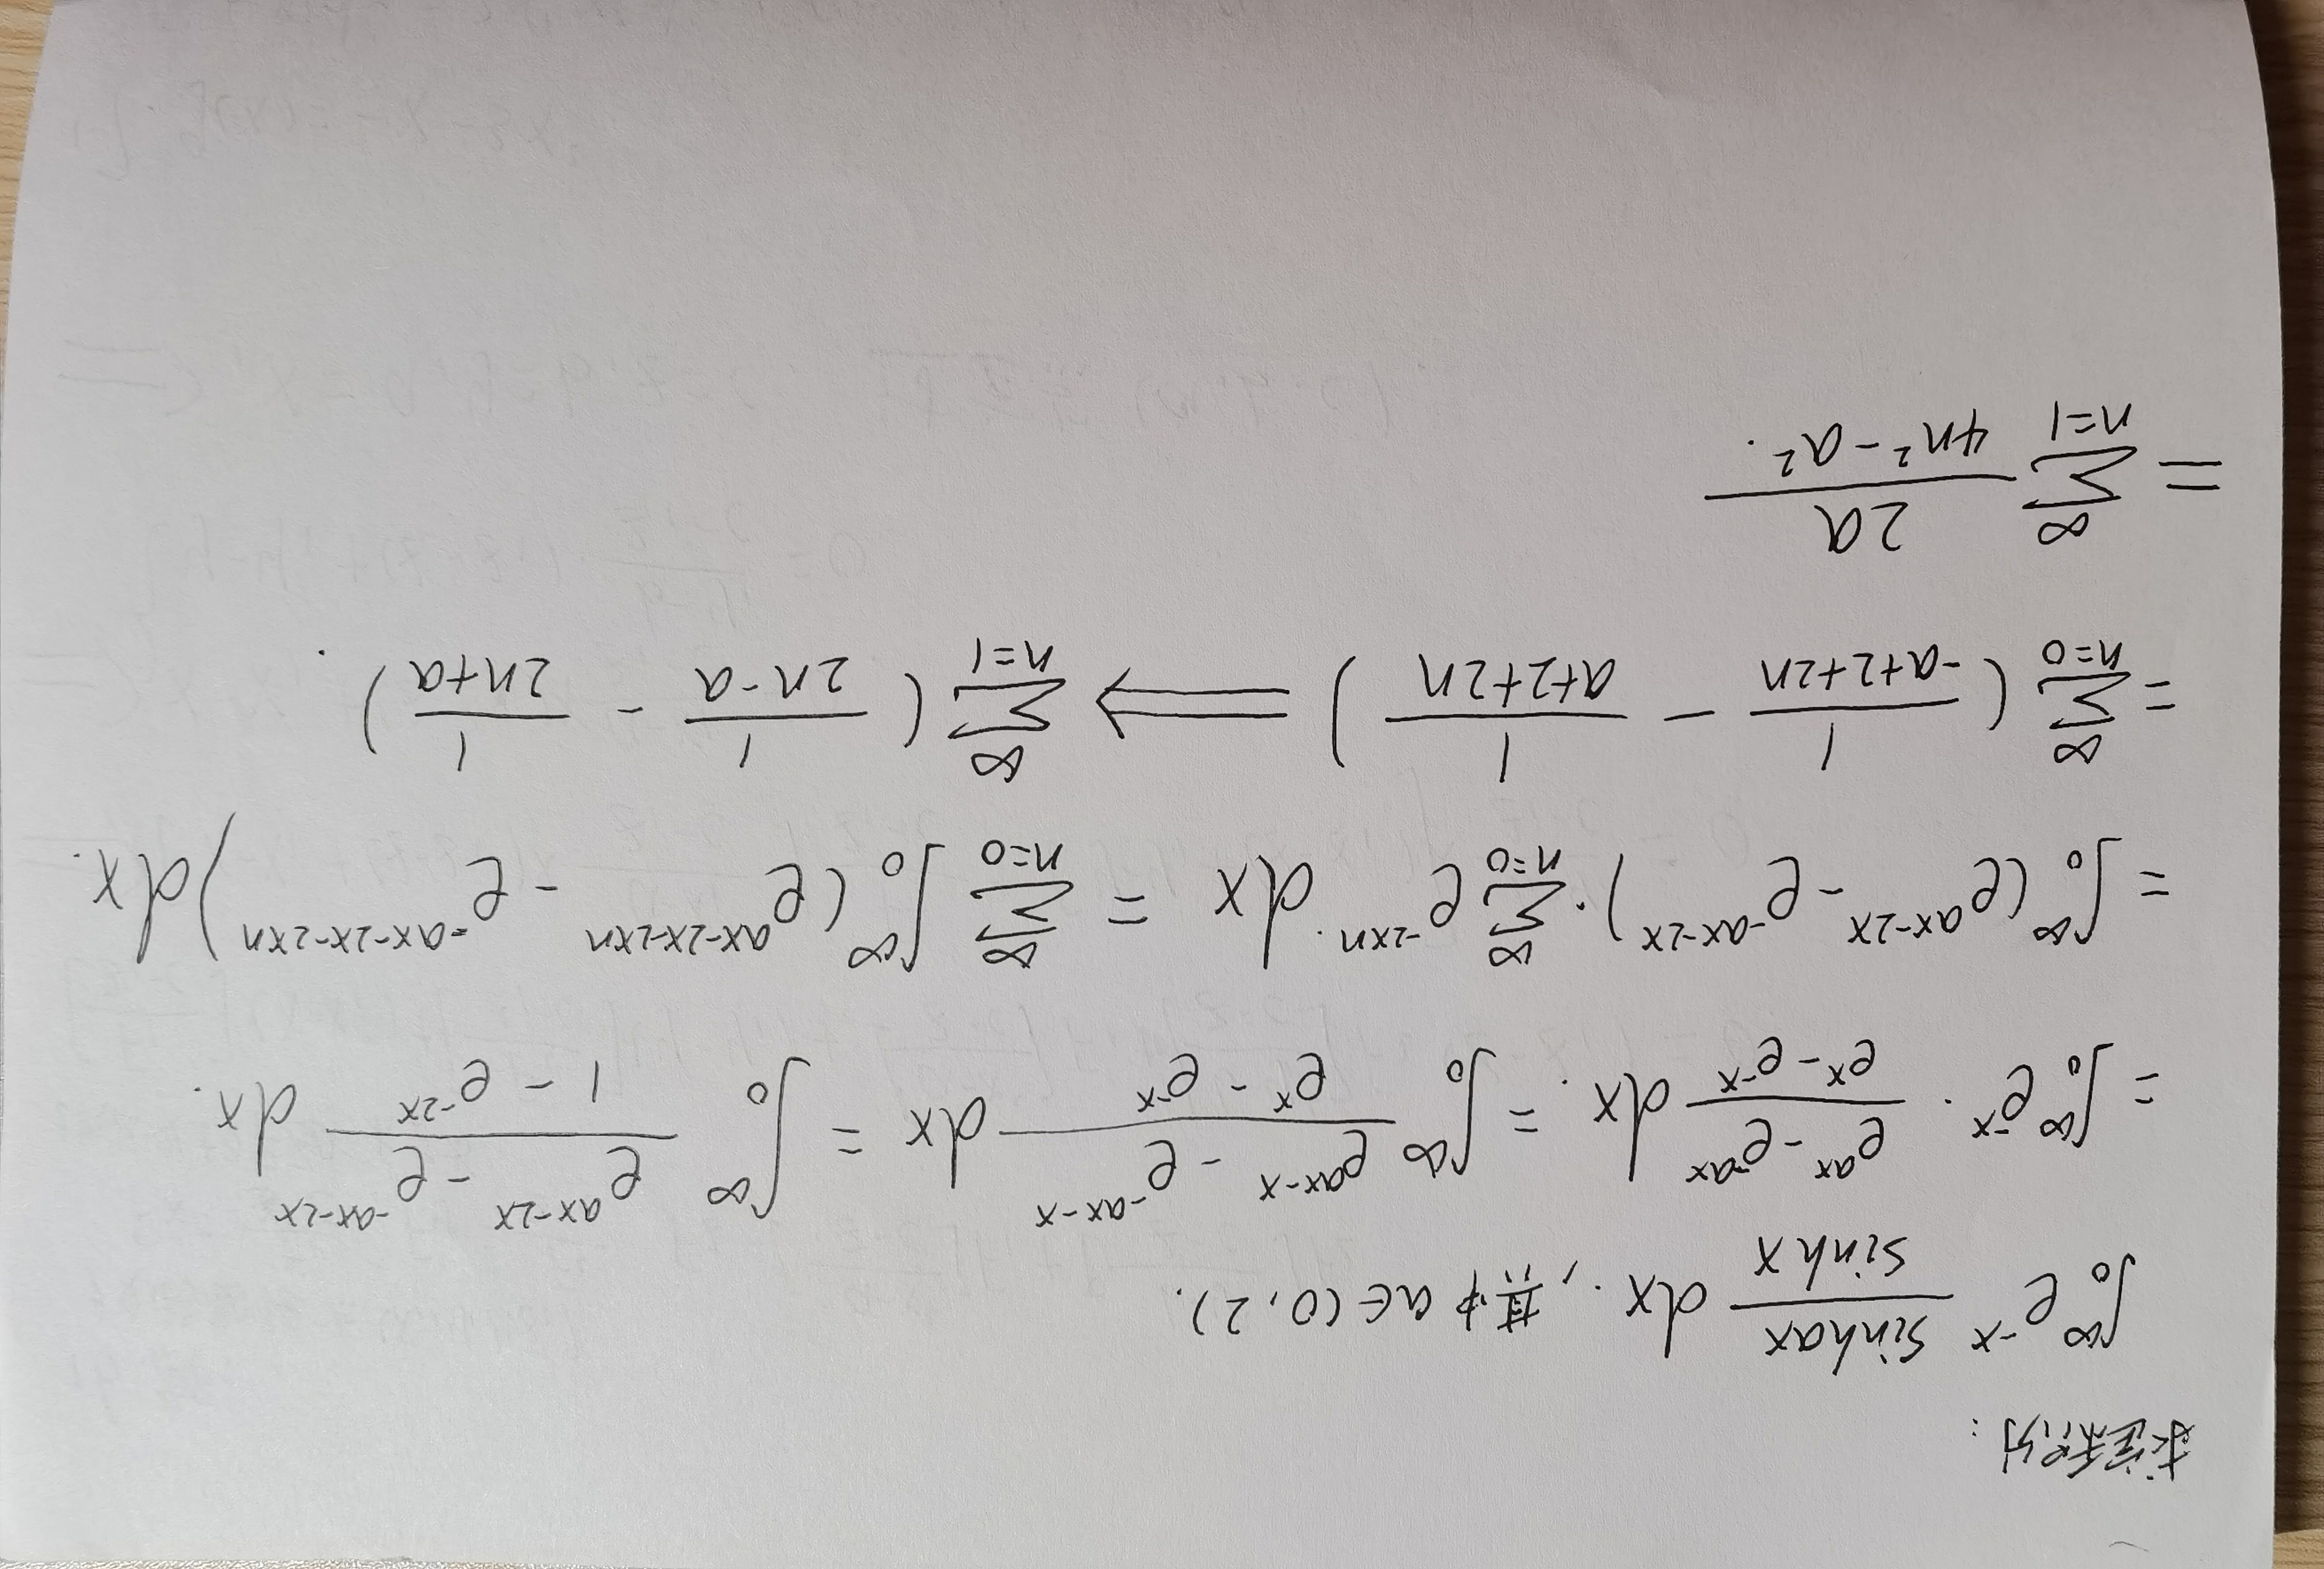 求定积分:
∫₀^∞ e^{-x} \frac{sinhax}{sinhx} dx., 其中 a∈(0,2).
= ∫₀^∞ e^{-x} · \frac{e^{ax}-e^{-ax}}{e^x-e^{-x}} dx. = ∫₀^∞ \frac{e^{ax-x}-e^{-ax-x}}{e^x-e^{-x}} dx = ∫₀^∞ \frac{e^{ax-2x}-e^{-ax-2x}}{1-e^{-2x}} dx.
= ∫₀^∞ (e^{ax-2x}-e^{-ax-2x})·∑_{n=0}^∞ e^{-2xn}. dx = ∑_{n=0}^∞ ∫₀^∞ (e^{ax-2x-2xn}-e^{-ax-2x-2xn})dx.
= ∑_{n=0}^∞ (\frac{1}{-a+2+2n} - \frac{1}{a+2+2n}) ⟹ ∑_{n=1}^∞ (\frac{1}{2n-a} - \frac{1}{2n+a}).
= ∑_{n=1}^∞ \frac{2a}{4n²-a²}.